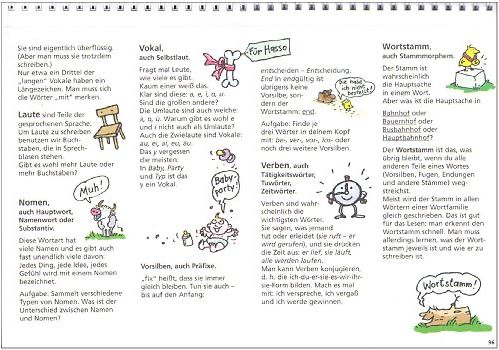 Sie sind eigentlich überflüssig.
(Aber man muss sie trotzdem
schreiben.)
Nur etwa ein Drittel der
„langen" Vokale haben ein
Längezeichen. Man muss sich
die Wörter „mit" merken.
Laute sind Teile der
gesprochenen Sprache.
Um Laute zu schreiben
benutzen wir Buch-
staben, die in Sprech-
blasen stehen.
Gibt es wohl mehr Laute oder
mehr Buchstaben?
Muh!
Nomen,
auch Hauptwort,
Namenwort oder
Substantiv.
Diese Wortart hat
viele Namen und es gibt auch
fast unendlich viele davon:
Jedes Ding, jede Idee, jedes
Gefühl wird mit einem Nomen
bezeichnet.
Aufgabe: Sammelt verschiedene
Typen von Nomen. Was ist der
Unterschied zwischen Namen
und Nomen?
Vokal,
auch Selbstlaut.
Für Hasso
Fragt mal Leute,
wie viele es gibt.
Kaum einer weiß das.
Klar sind diese: a, e, i, o, u.
Sind die großen andere?
Die Umlaute sind auch welche:
ä, ö, ü. Warum gibt es wohl e
und i nicht auch als Umlaute?
Auch die Zwielaute sind Vokale:
au, ei, ai, eu, äu.
Das y vergessen
die meisten:
In Baby, Party
und Typ ist das
y ein Vokal.
Baby-
party!
Vorsilben, auch Präfixe.
„fix" heißt, dass sie immer
gleich bleiben. Tun sie auch –
bis auf den Anfang:
entscheiden – Entscheidung.
End in endgültig ist
übrigens keine
Vorsilbe, son-
dern der
Wortstamm: end.
Die habe
ich nicht
bestellt!
Aufgabe: Finde je
drei Wörter in deinem Kopf
mit: be-, ver-, vor-, los- oder
noch drei weitere Vorsilben.
Verben, auch
Tätigkeitswörter,
Tuwörter,
Zeitwörter.
Verben sind wahr-
scheinlich die
wichtigsten Wörter.
Sie sagen, was jemand
tut oder erleidet (sie ruft – er
wird gerufen), und sie drücken
die Zeit aus: er lief, sie läuft,
alle werden laufen.
Man kann Verben konjugieren,
d. h. die ich-du-er-sie-es-wir-ihr-
sie-Form bilden. Mach es mal
mit: ich verspreche, ich vergaß
und ich werde gewinnen.
Wortstamm,
auch Stammmorphem.
Der Stamm ist
wahrscheinlich
die Hauptsache
in einem Wort.
Aber was ist die Hauptsache in
Bahnhof oder
Bauernhof oder
Busbahnhof oder
Hauptbahnhof?
Der Wortstamm ist das, was
übrig bleibt, wenn du alle
anderen Teile eines Wortes
(Vorsilben, Fugen, Endungen
und andere Stämme) weg-
streichst.
Meist wird der Stamm in allen
Wörtern einer Wortfamilie
gleich geschrieben. Das ist gut
für das Lesen: man erkennt den
Wortstamm schnell. Man muss
allerdings lernen, was der Wort-
stamm jeweils ist und wie er zu
schreiben ist.
Wortstamm!
96